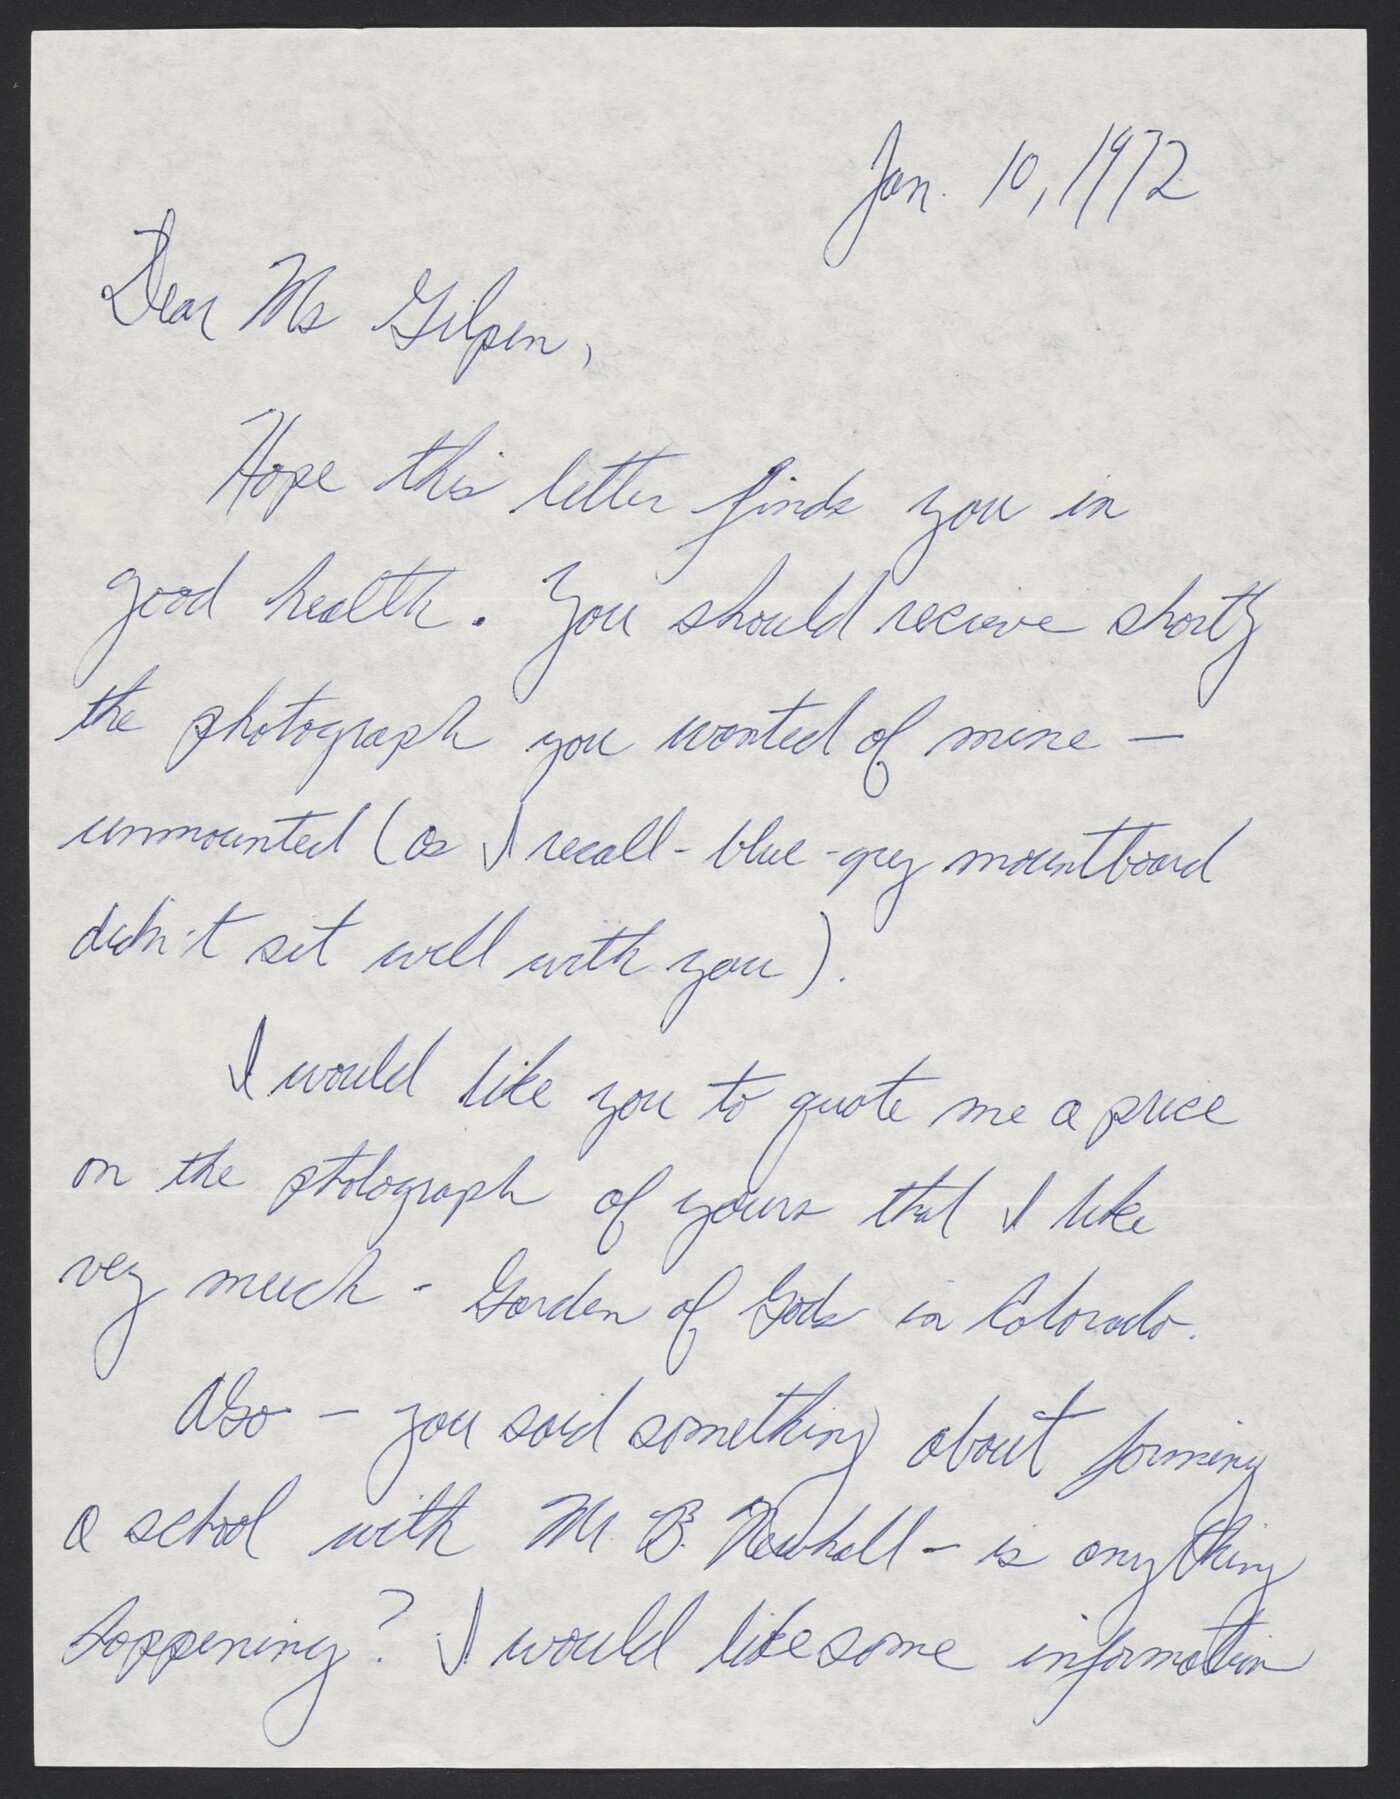 Jan. 10, 1972
Dear Ms Gilpin,
Hope this letter finds you in
good health. You should recieve shortly
the photograph you wanted of mine —
unmounted (as I recall - blue-grey mountboard
didn't sit well with you).
I would like you to quote me a price
on the photograph of yours that I like
very much - Garden of Gods in Colorado.
Also — you said something about forming
a school with Mr. B. Newhall — is anything
happening? I would like some information